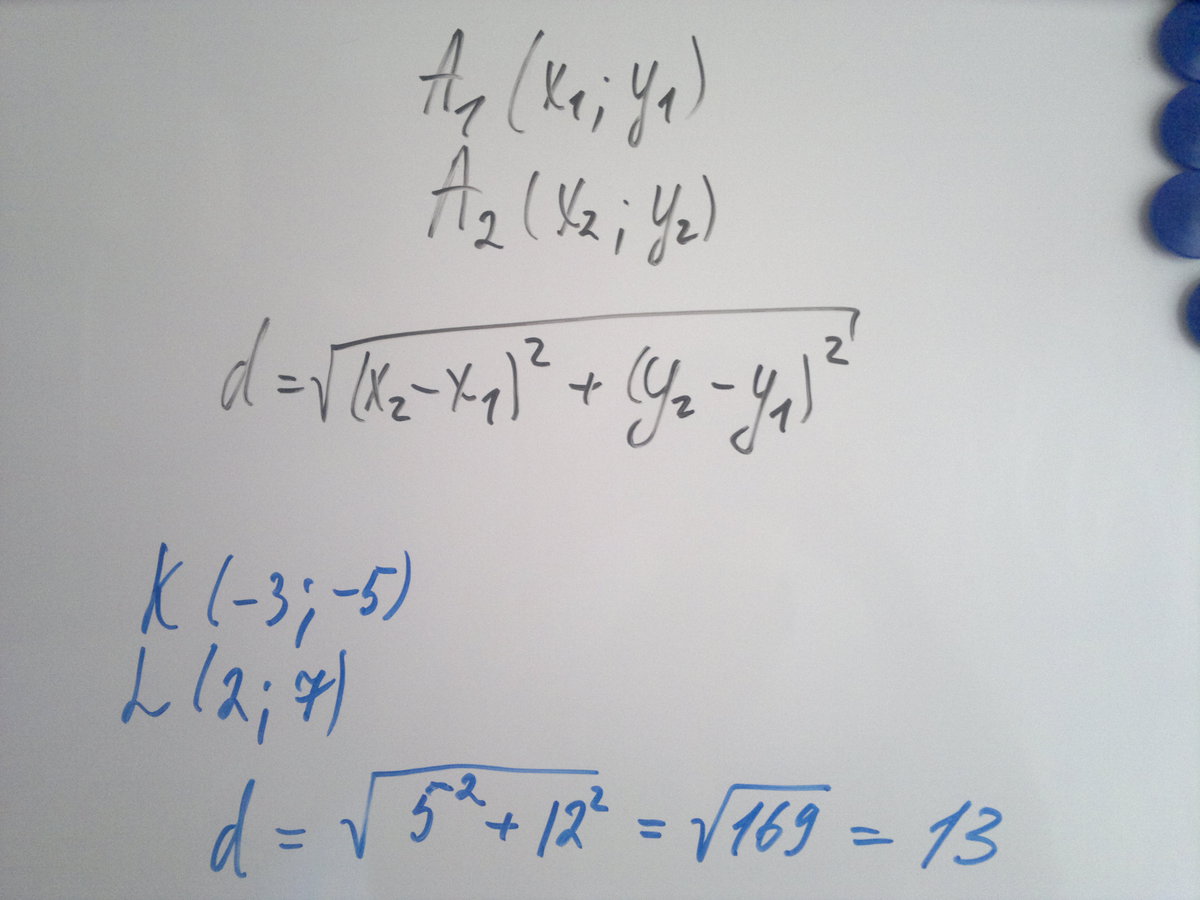 A₁ (x₁; y₁)
A₂ (x₂; y₂)
d = √((x₂ - x₁)² + (y₂ - y₁)²)
K (-3; -5)
L (2; 7)
d = √(5² + 12²) = √169 = 13